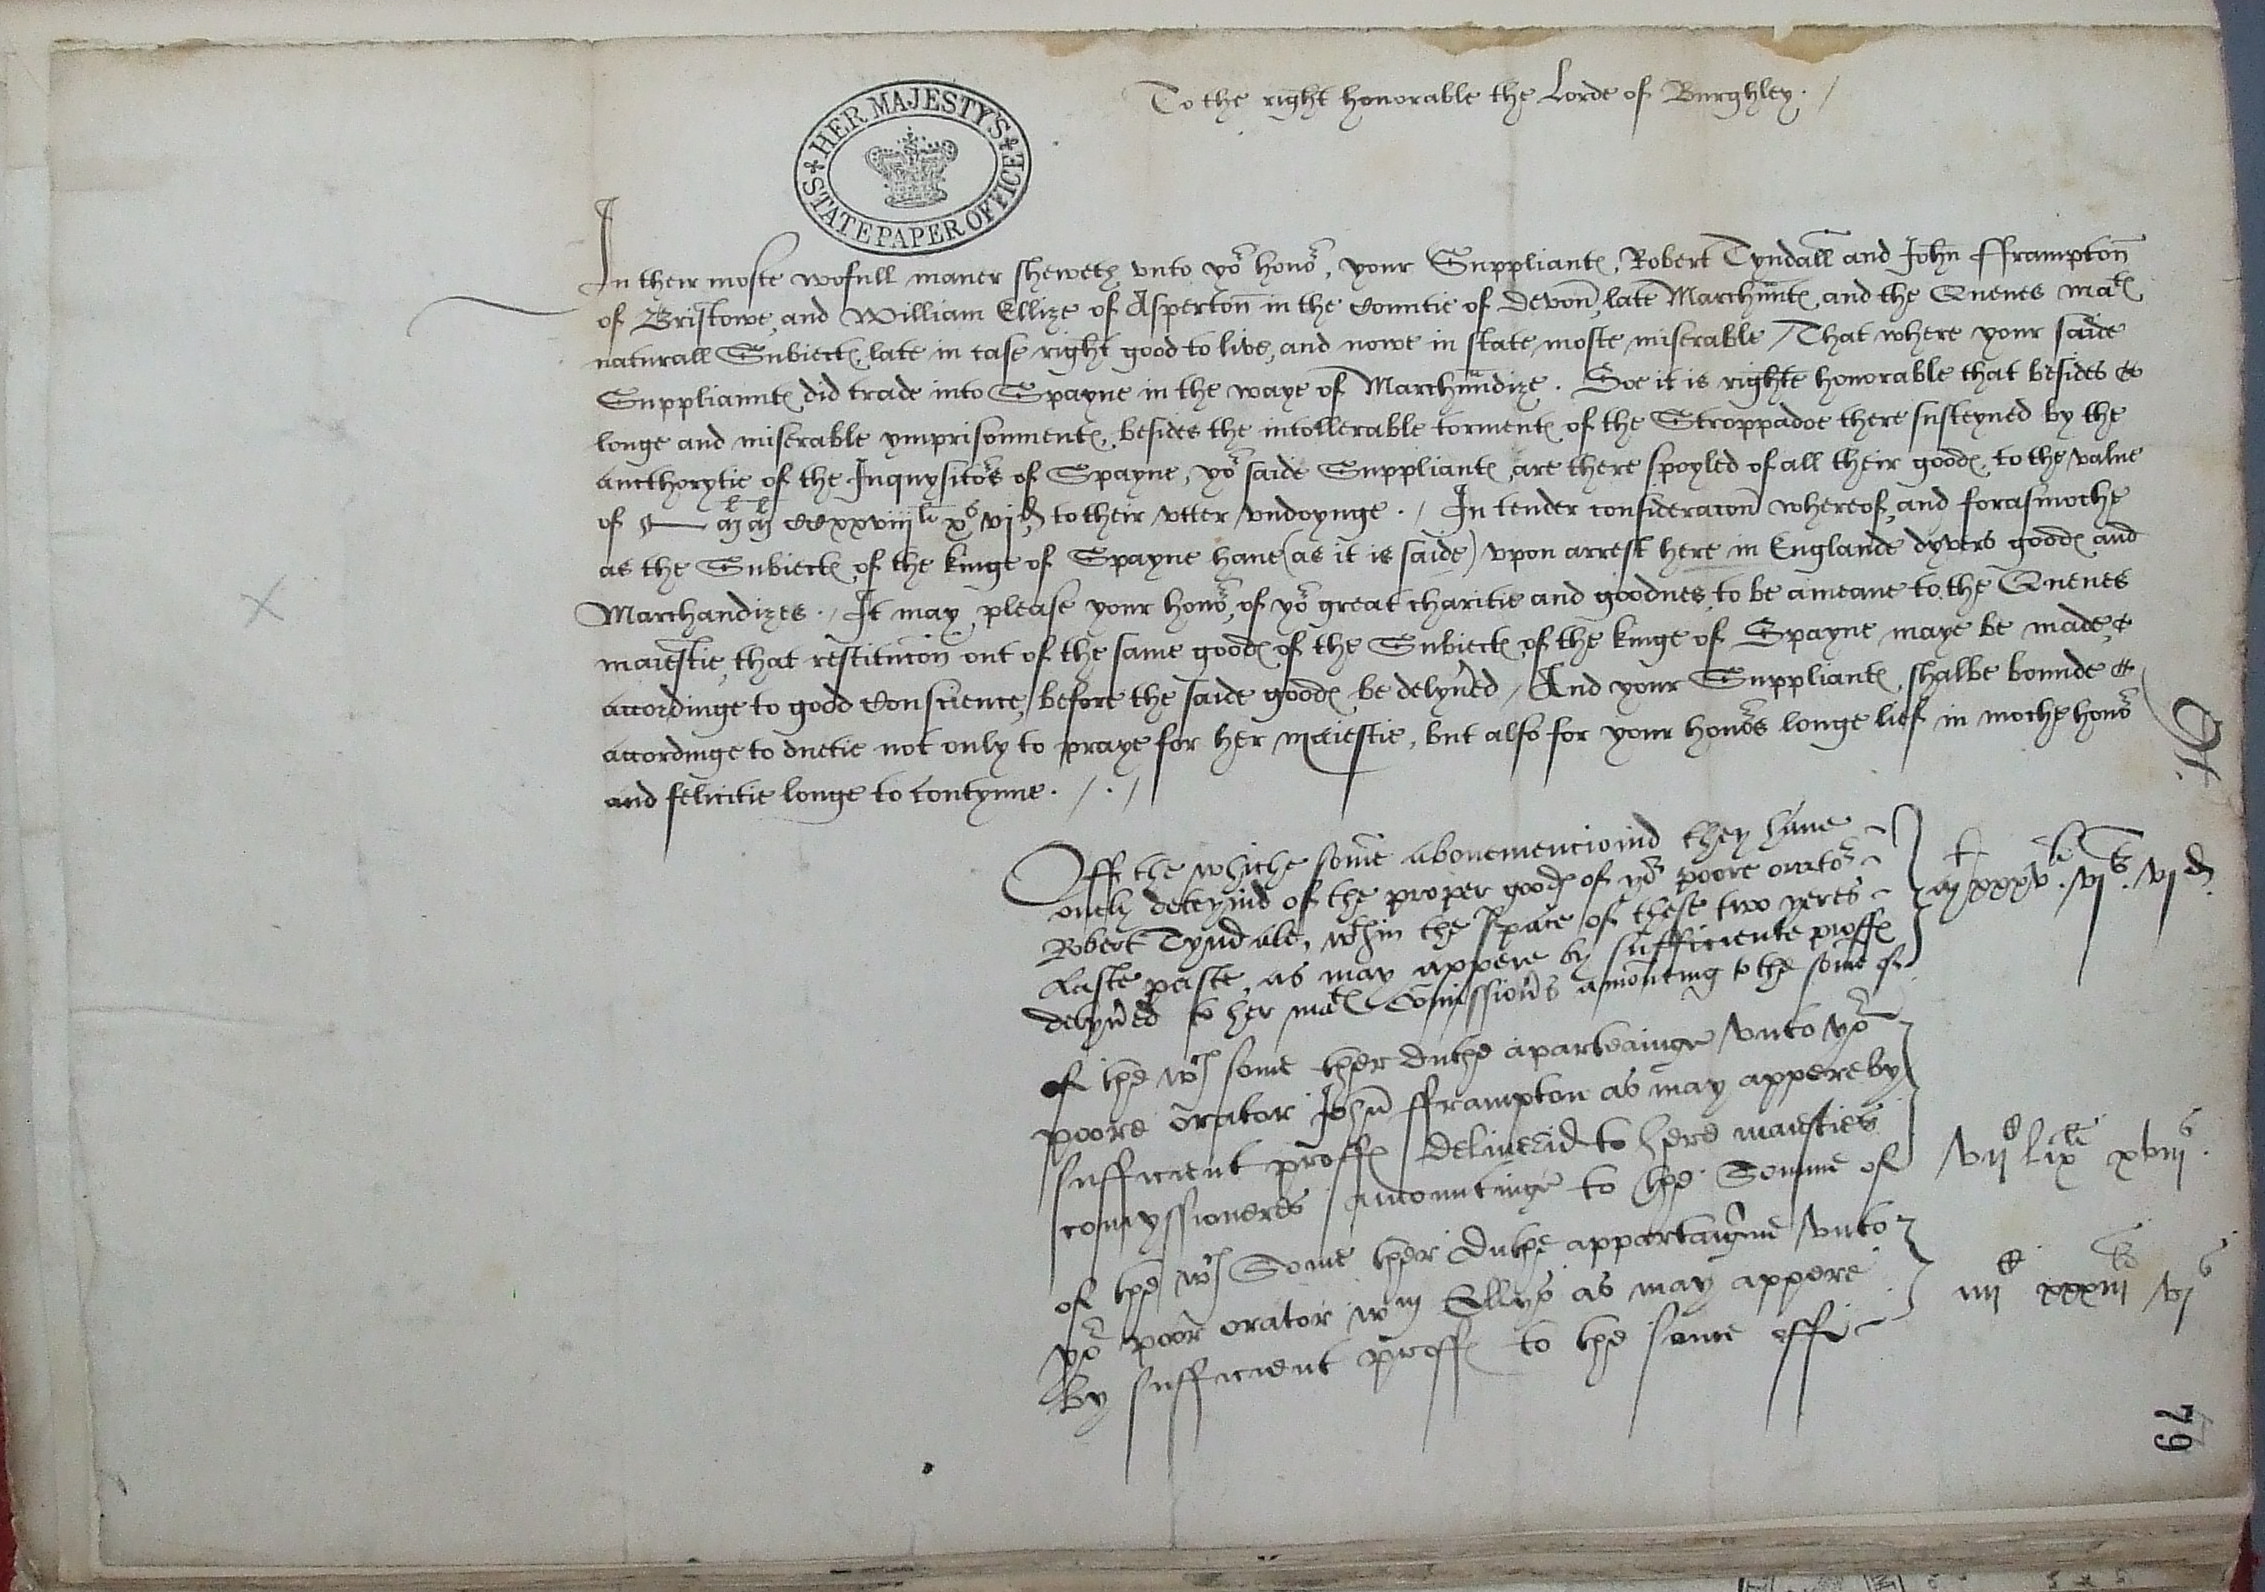 To the right honorable the Lorde of Burghley . /
HER MAJESTY'S STATE PAPER OFFICE
In their moste wofull maner sheweth vnto yor honor, your Suppliantes, Robert Tyndall and John fframpton
of Bristowe, and William Ellize of Asperton in the Countie of Devon, late Marchuntes, and the Quenes Mates
naturall Subiectes, late in case right good to live, and nowe in state moste miserable / That where your saide
Suppliauntes did trade into Spayne in the waye of Marchundize . Soe it is righte honorable that besides
longe and miserable ymprisonmentes, besides the intollerable tormentes of the Stroppadoe there susteyned by the
aucthorytie of the Inquysitors of Spayne, yor saide Suppliantes, are there spoyled of all their goodes, to the value
of CCxxviijli xs vjd, to their vtter vndoynge . / In tender consideracon whereof, and forasmoche
as the Subiectes of the kinge of Spayne haue (as it is saide) vpon arrest here in Englande dyvers goodes and
Marchandizes . / It may please your honor, of yor great charitie and goodnes to be a meane to the Quenes
maiestie, that restitucion out of the same goodes of the Subiectes of the kinge of Spayne maye be made,
accordinge to good Conscience, before the saide goodes be delyuered / And your Suppliantes, shalbe bounde
accordinge to duetie not only to praye for her maiestie, but also for your honors longe lief in moche honor
and felicitie longe to contynue . / . /
Off the whiche some abouemencioned they haue
only deteynid of the proper goodes of yor poore orator
Robert Tyndale, within the space of these two yeres
Laste paste, as may appere by sufficiente proffes
delyuered to her mates Comissioners amounting to the some of
xxxvli . vjs . vjd
of the wch some ther duthe aparteainge vnto yor
poore orator John fframpton as may appere by
sufficient proffes deliuerid to here maiesties
comyssioneres amountinge to the Somme of
vijc lixli xviijs .
of the wch Some ther duthe appartaigne vnto
yor poor orator wm Ellys as may appere
by sufficient proffes to the some off
iiijc xxxiijli vjs
79